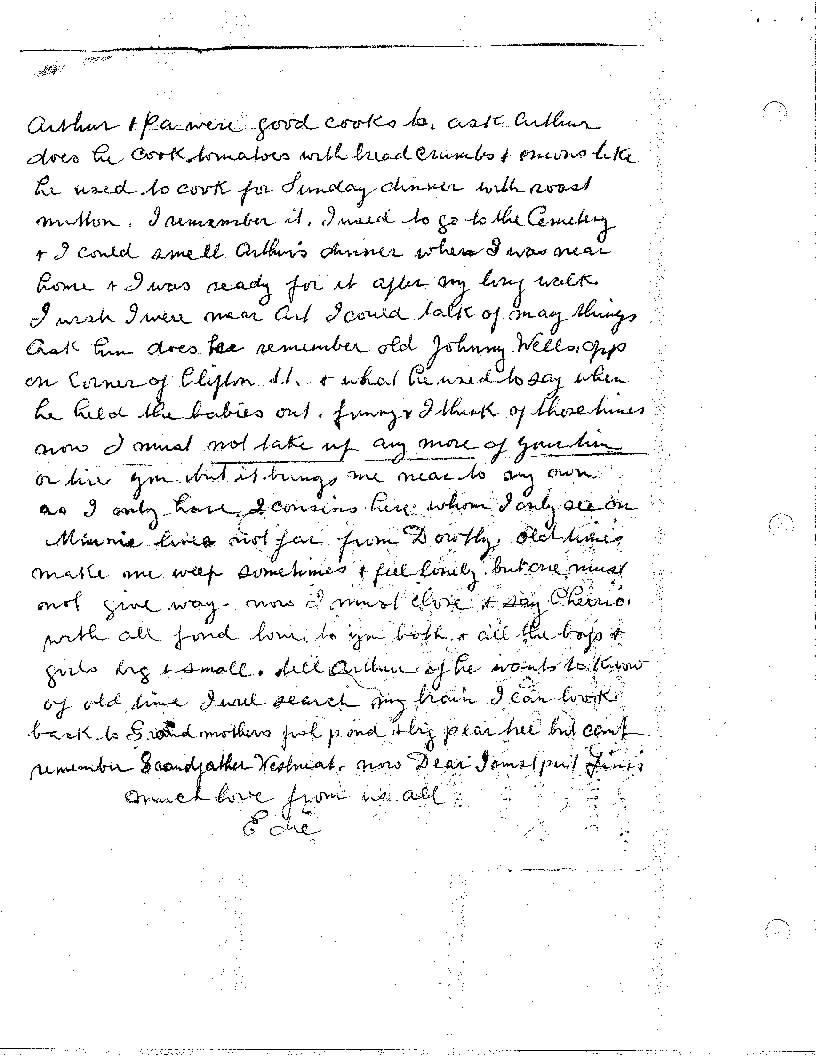 Arthur + Pa were good cooks to. ask Arthur
does he cook tomatoes with bread crumbs + onions like
he used to cook for Sunday dinner with roast
mutton. I remember it. I used to go to the Cemetery
+ I could smell Arthur's dinner when I was near
home + I was ready for it after my long walk.
I wish I were near Art I could talk of many things
Ask him does he remember old Johnny Wells. opp
on Corner of Clifton St. + what he used to say when
he held the babies out. funny + I think of those times
now I must not take up any more of your tim
or tire you but it brings me near to my own
as I only have 2 cousins here whom I only see on
Minnie lives not far from Dorothy. old times
make me weep sometimes + feel lonely. but one must
not give way. now I must close + say Cheerio.
with all fond love to you both + all the boys +
girls big + small. tell Arthur if he wants to know
of old time I will search my brain I can look
back to Grand mothers fish pond + big pear tree but can't
remember Grandfather. now Dear I must put Finis
much love from us all
Edie